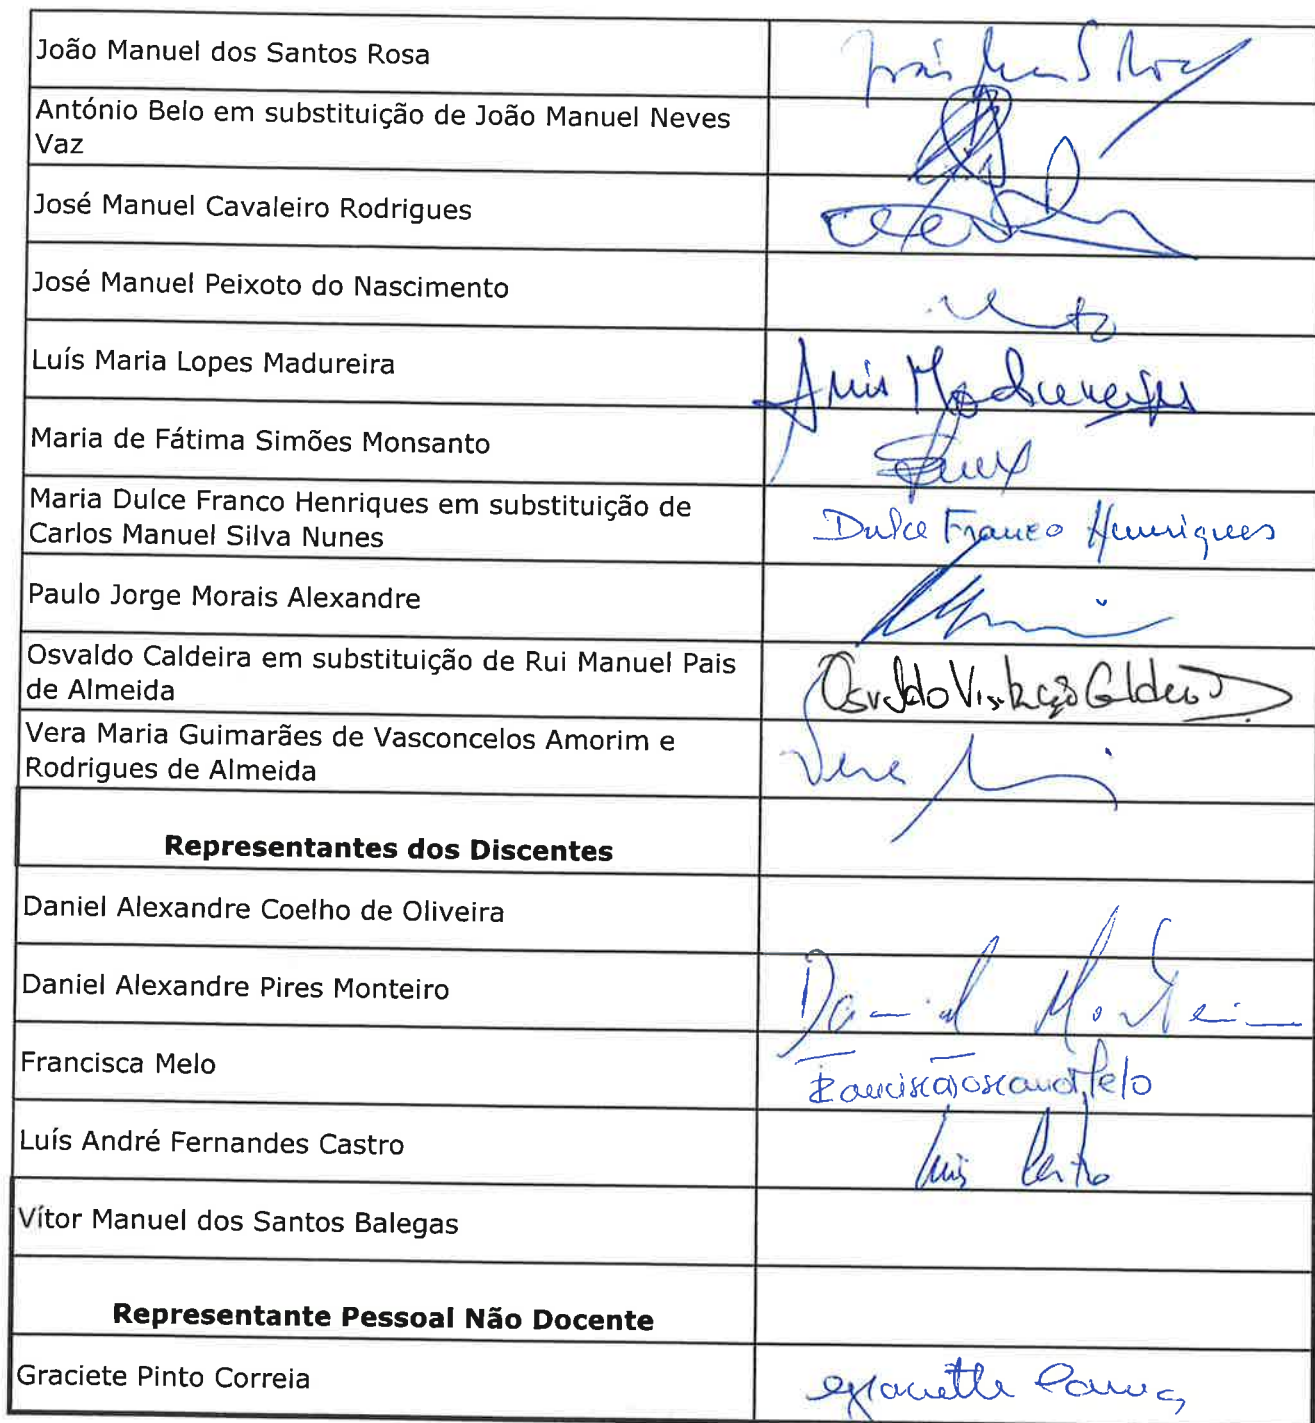 João Manuel dos Santos Rosa
António Belo em substituição de João Manuel Neves
Vaz
José Manuel Cavaleiro Rodrigues
José Manuel Peixoto do Nascimento
Luís Maria Lopes Madureira
Luis Madureira
Maria de Fátima Simões Monsanto
Maria Dulce Franco Henriques em substituição de
Carlos Manuel Silva Nunes
Dulce Franco Henriques
Paulo Jorge Morais Alexandre
Osvaldo Caldeira em substituição de Rui Manuel Pais
de Almeida
Osvaldo Caldeira
Vera Maria Guimarães de Vasconcelos Amorim e
Rodrigues de Almeida
Vera
Representantes dos Discentes
Daniel Alexandre Coelho de Oliveira
Daniel Alexandre Pires Monteiro
Daniel Monteiro
Francisca Melo
Luís André Fernandes Castro
Luis Castro
Vítor Manuel dos Santos Balegas
Representante Pessoal Não Docente
Graciete Pinto Correia